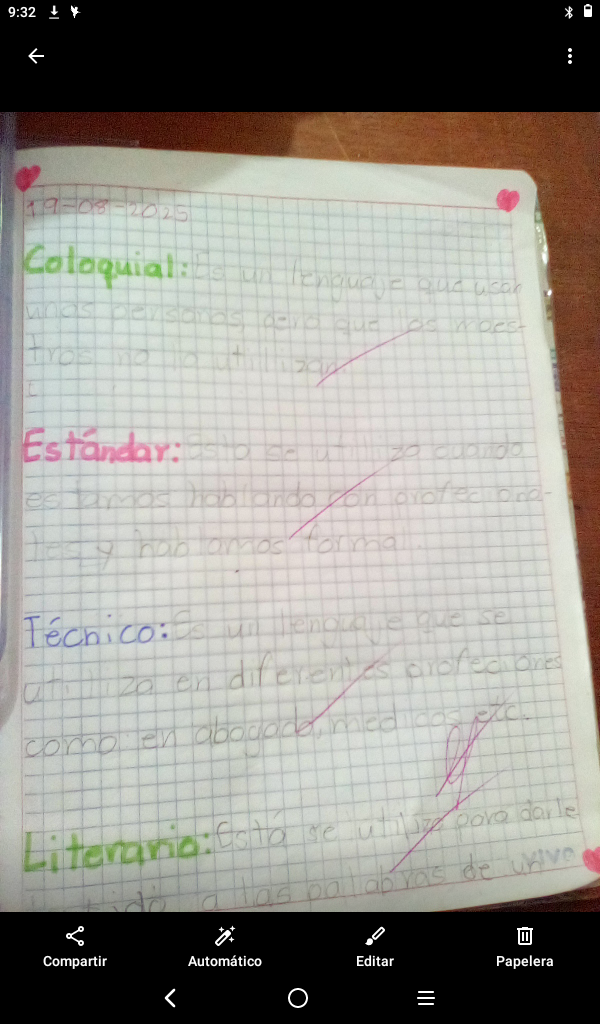 9:32
19-08-2025
Coloquial: Es un lenguaje que usan
unas personas pero que los maes-
tros no lo utilizan
Estándar: Esta se utiliza cuando
estamos hablando con profeciona-
les y hablamos formal.
Técnico: Es un lenguaje que se
utiliza en diferentes profeciones
como en abogado, medicos etc.
Literario: Está se utiliza para darle
a las palabras de
Compartir
Automático
Editar
Papelera